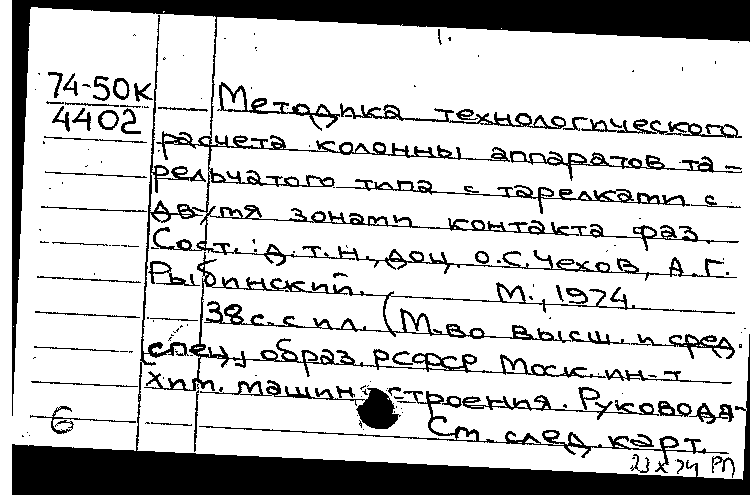 74-50к
4402
Методика технологического
расчета колонны аппаратов та-
рельчатого типа с тарелками с
двумя зонами контакта фаз.
Сост.: д.т.н., доц. О.С. Чехов, А.Г.
Рыбинский. М., 1974.
38 с. с ил. (М-во высш. и сред.
спец. образ. РСФСР. Моск. ин-т
хим. машиностроения. Руководя-
6 См. след. карт.
23 X 74 РП